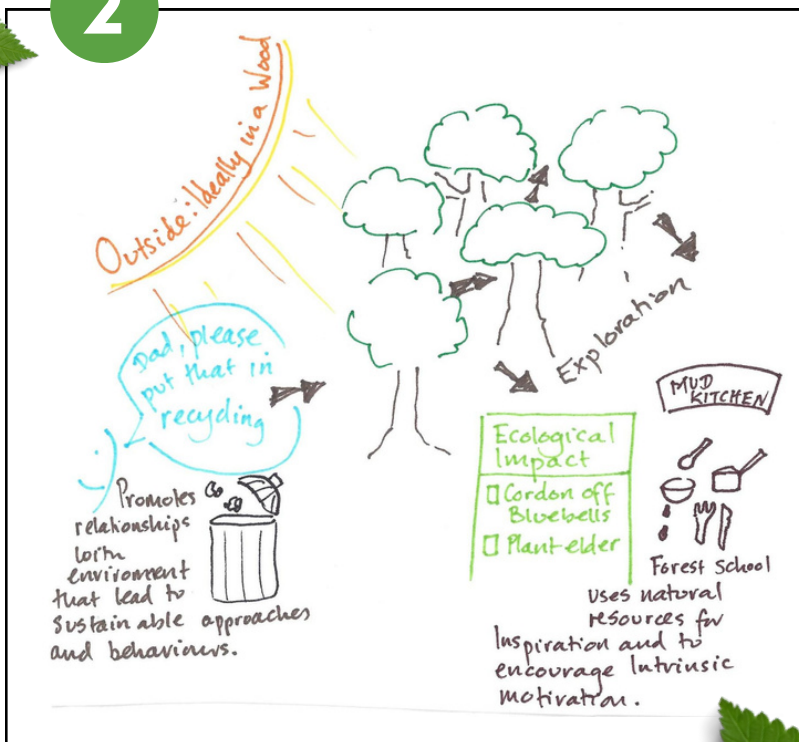 2
Outside: Ideally in a Wood
Dad, please
put that in
recycling
Exploration
MUD
KITCHEN
Ecological
Impact
Cordon off
Bluebells
Plant elder
Promotes
relationships
with
enviroment
that lead to
Sustainable approaches
and behaviours.
Forest School
uses natural
resources for
Inspiration and to
encourage Intrinsic
motivation.